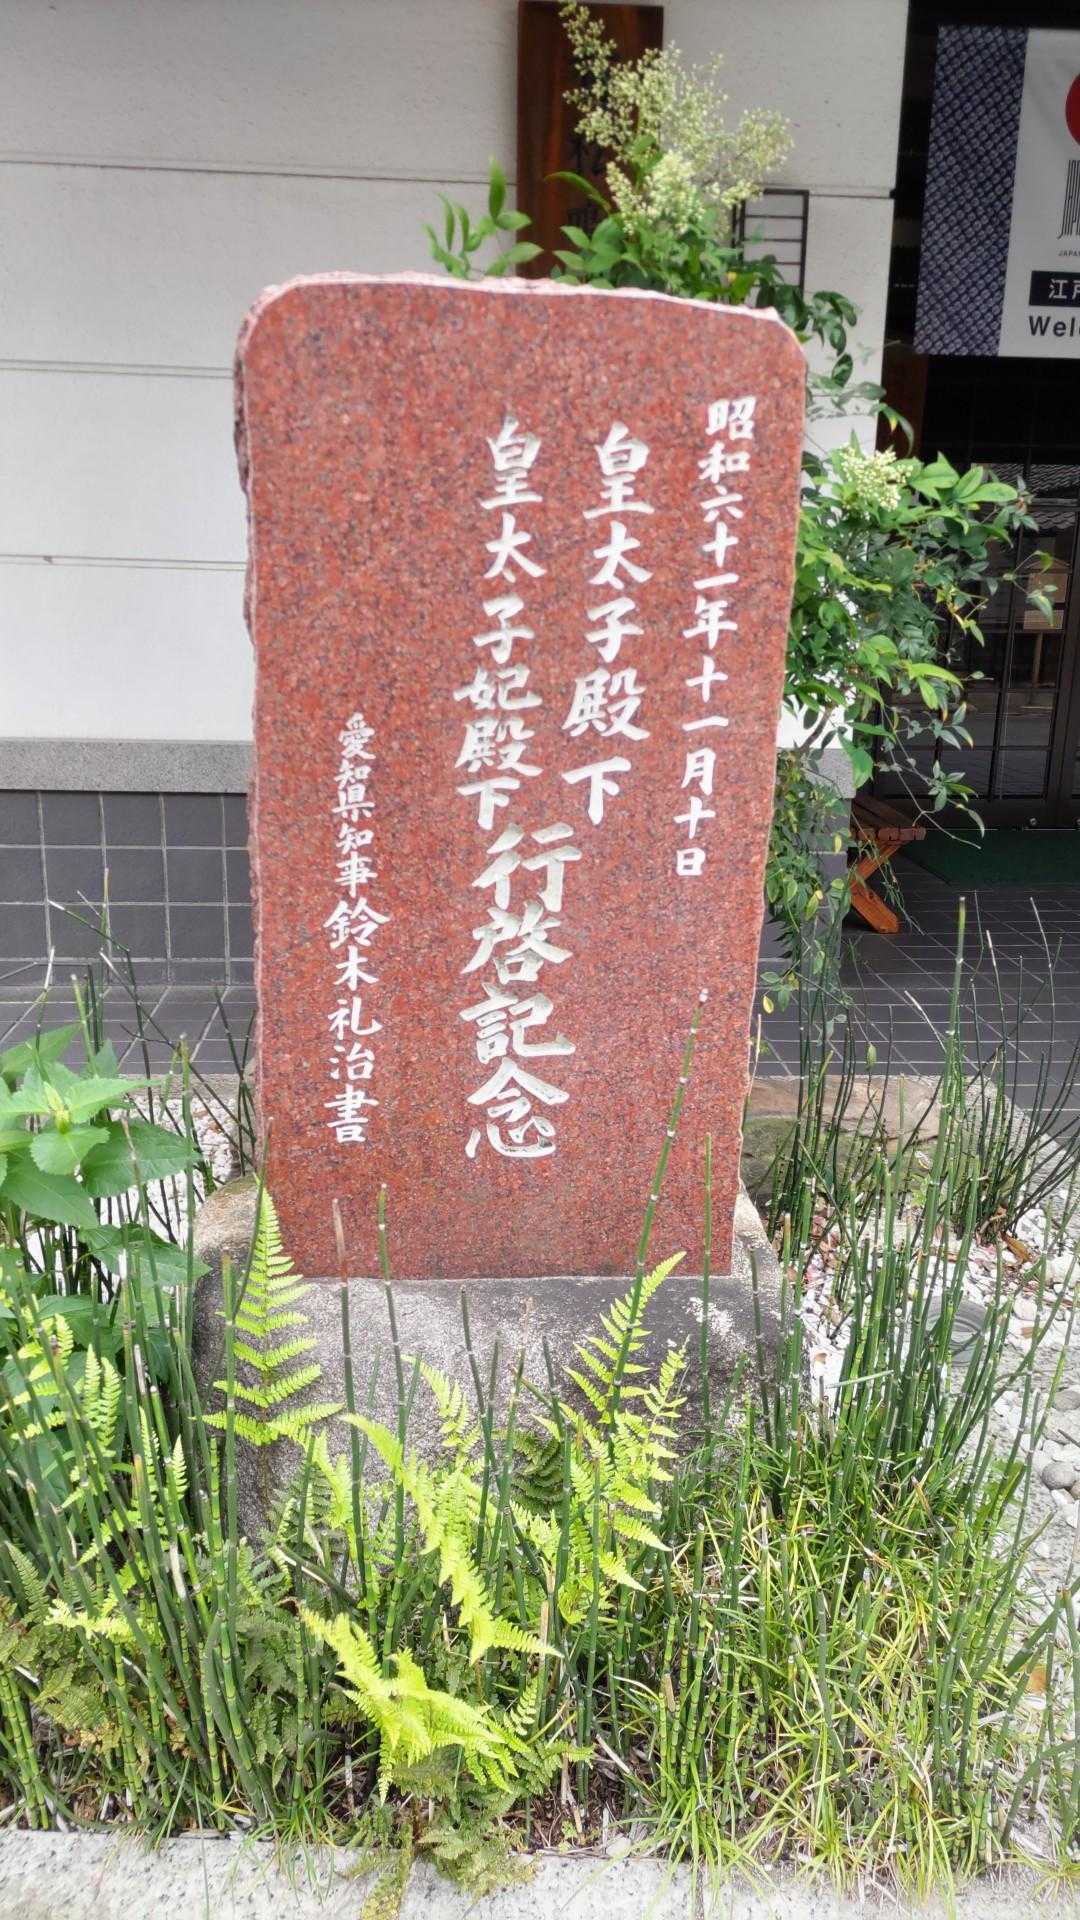 昭和六十一年十一月十日
皇太子殿下
皇太子妃殿下
行啓記念
愛知県知事鈴木礼治書
江戸
Wel